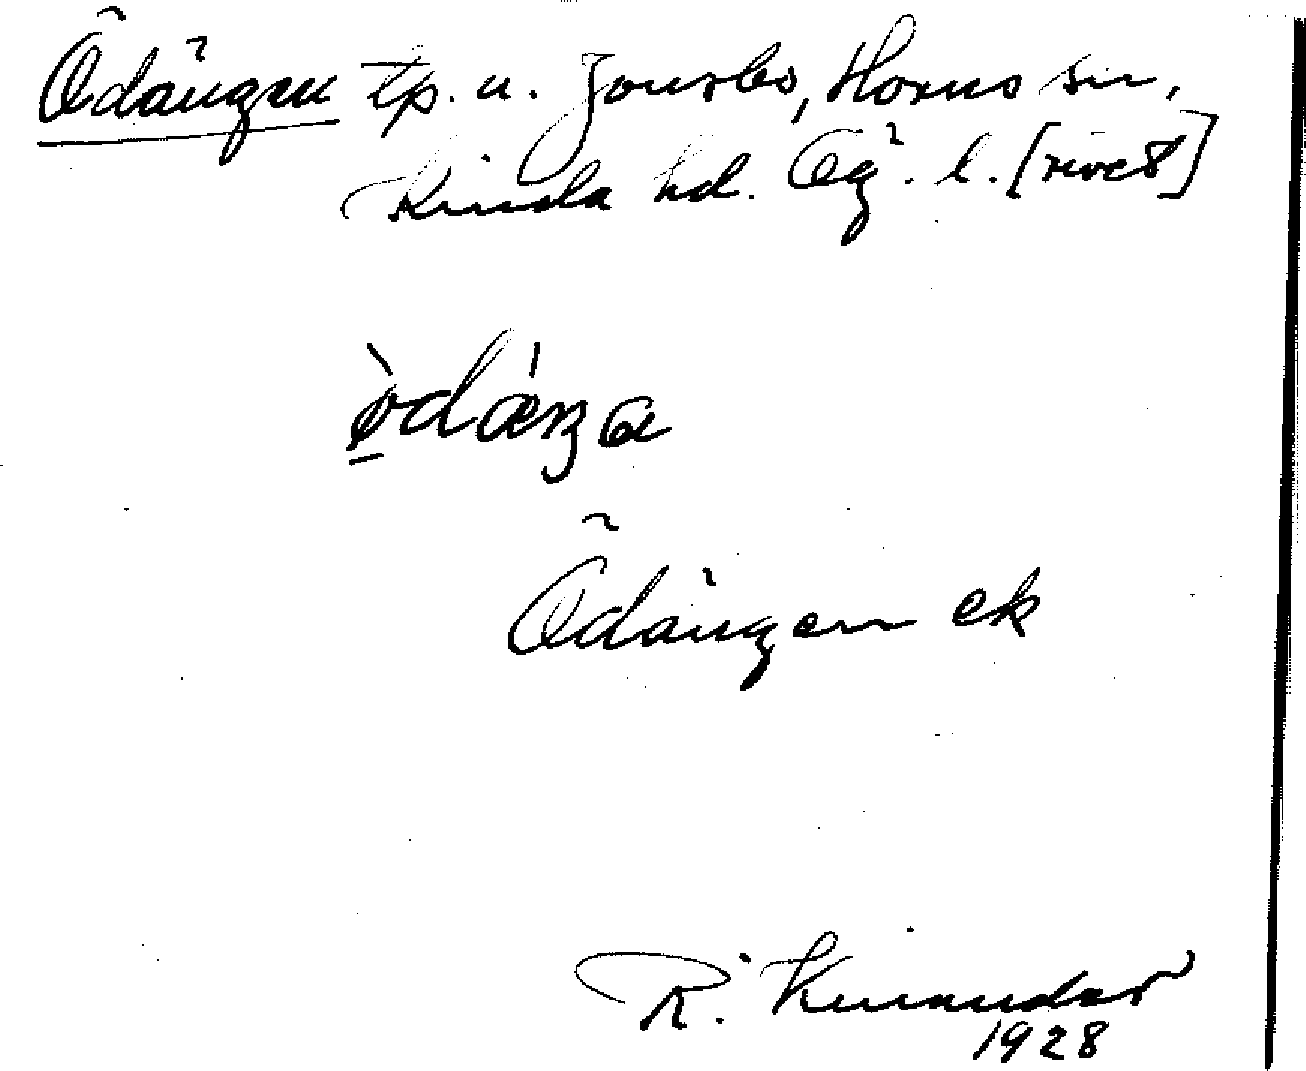 Ödängen tp. u. Jonsbo, Horns sn,
Kinda hd. Ög. l. [rivet]
ö̀dä́ŋa
Ödängen ek
R. Kinander
1928